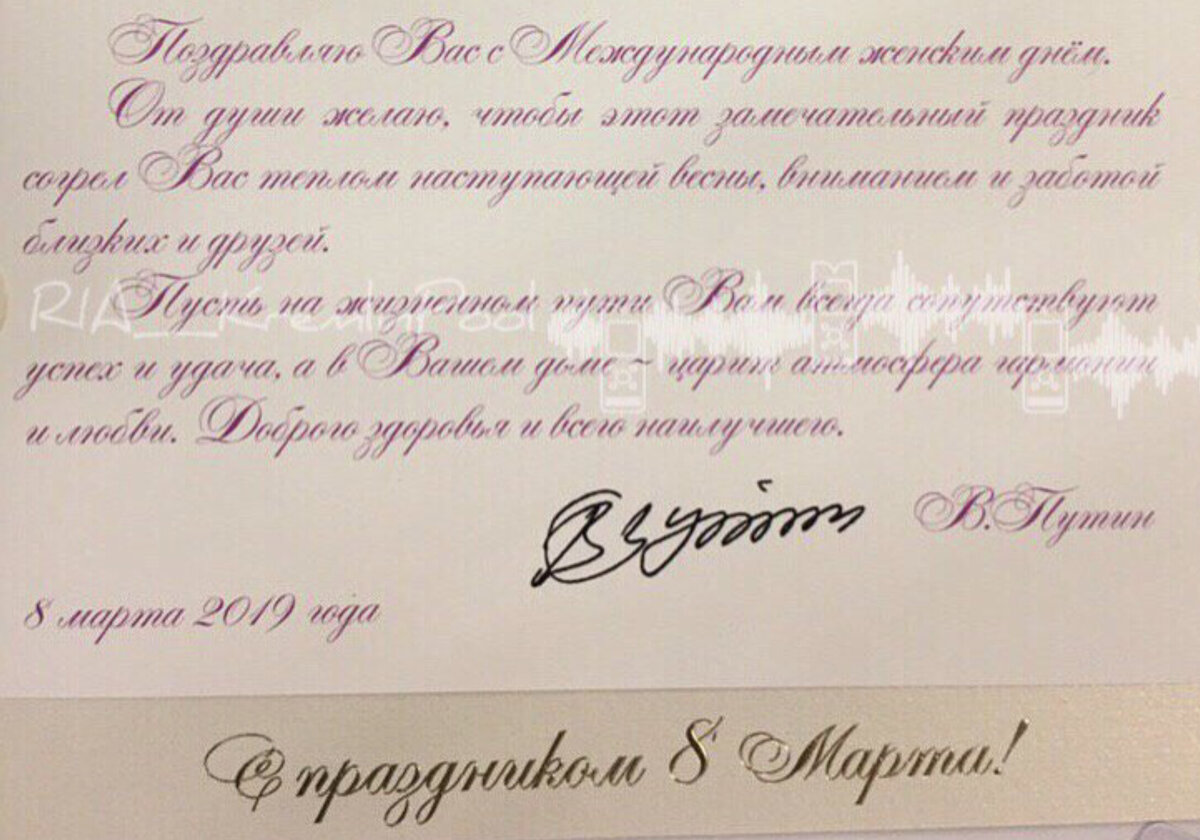 Поздравляю Вас с Международным женским днём.
От души желаю, чтобы этот замечательный праздник
согрел Вас теплом наступающей весны, вниманием и заботой
близких и друзей.
RIA__KremlinPool
Пусть на жизненном пути Вам всегда сопутствуют
успех и удача, а в Вашем доме ~ царит атмосфера гармонии
и любви. Доброго здоровья и всего наилучшего.
В.Путин
8 марта 2019 года
С праздником 8 Марта!